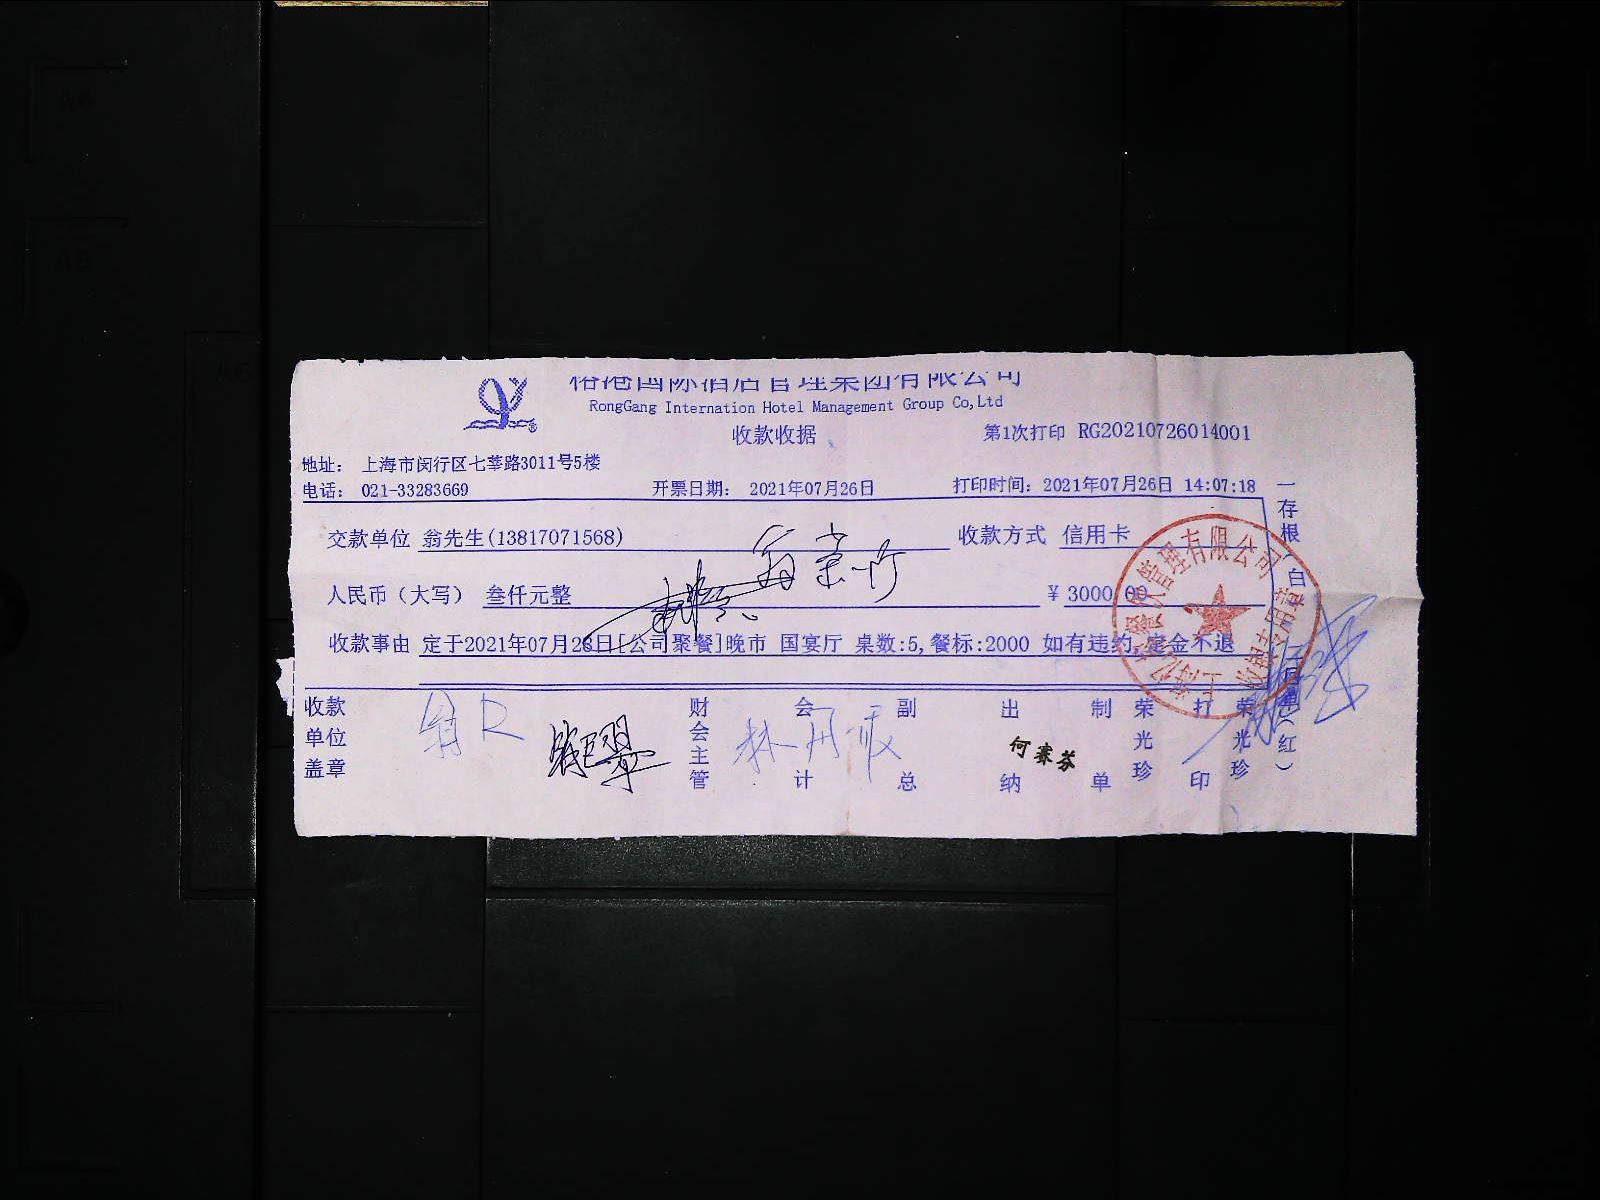 国际酒店管理集团有限公司
RongGang Internation Hotel Management Group Co,Ltd
收款收据
第1次打印 RG20210726014001
地址： 上海市闵行区七莘路3011号5楼
电话： 021-33283669 开票日期： 2021年07月26日 打印时间：2021年07月26日 14:07:18
交款单位 翁先生(13817071568) 收款方式 信用卡
人民币（大写） 叁仟元整 ￥3000.00
收款事由 定于2021年07月28日[公司聚餐]晚市 国宴厅 桌数:5,餐标:2000 如有违约,定金不退
收款单位盖章 财会主管 会计 副总 出纳 何赛芬 制单 荣光珍 打印 荣光珍
一存根 白
红）
管理有限公司
收据专用章